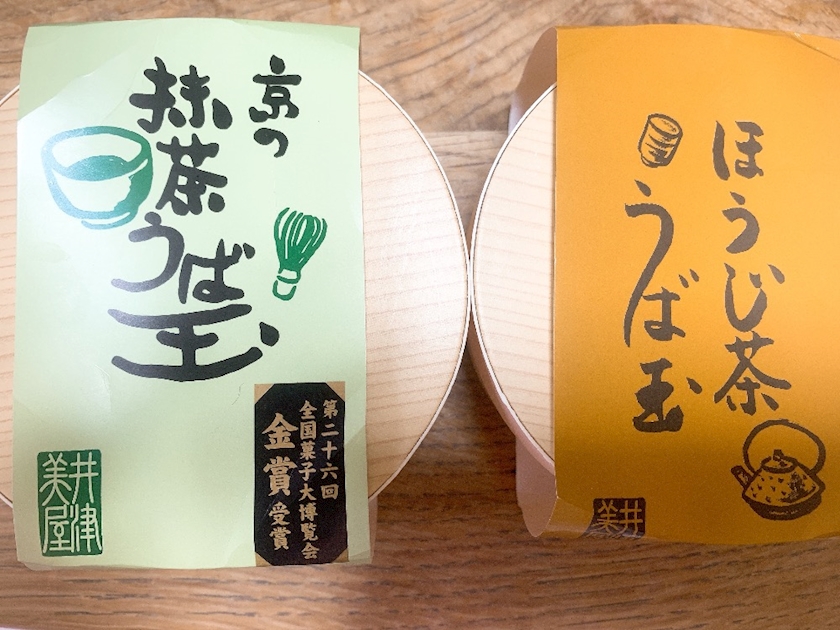 京の
抹茶
うば
玉
第二十六回
全国菓子大博覧会
金賞受賞
井津
美屋
ほうじ茶
うば玉
井
美